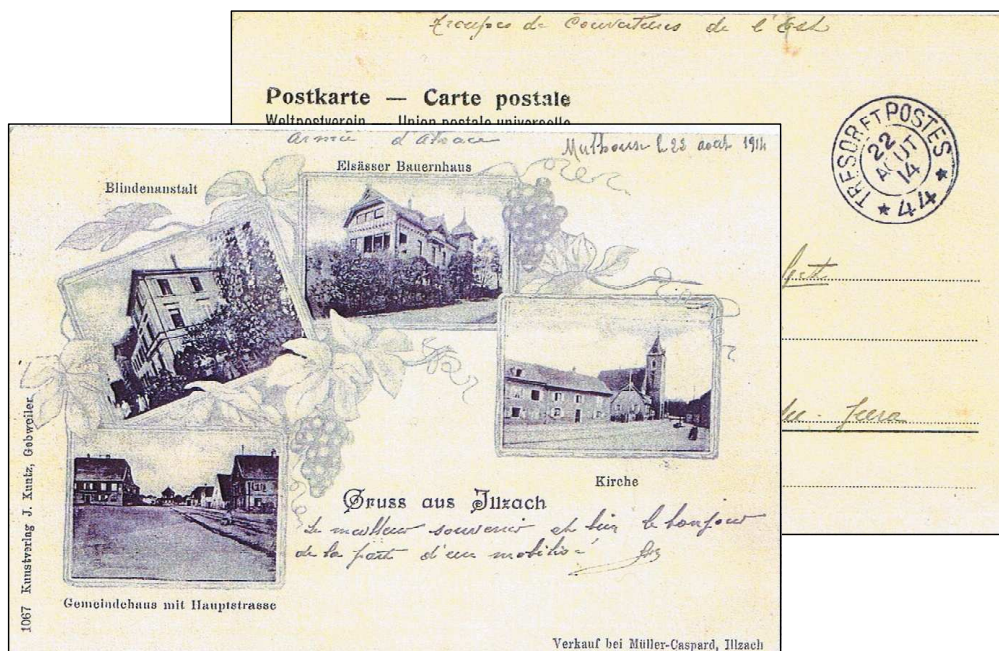 Troupes de Couvertures de l'Est
Postkarte — Carte postale
Weltpostverein — Union postale universelle
TRESOR ET POSTES
22
AOUT
14
* 44 *
Jura
armée d'Alsace
Mulhouse le 22 août 1914
Blindenanstalt
Elsässer Bauernhaus
Kirche
Gruss aus Illzach
Le meilleur souvenir et bien le bonjour
de la part d'un mobilisé
Gemeindehaus mit Hauptstrasse
1067 Kunstverlag J. Kuntz, Gebweiler.
Verkauf bei Müller-Caspard, Illzach